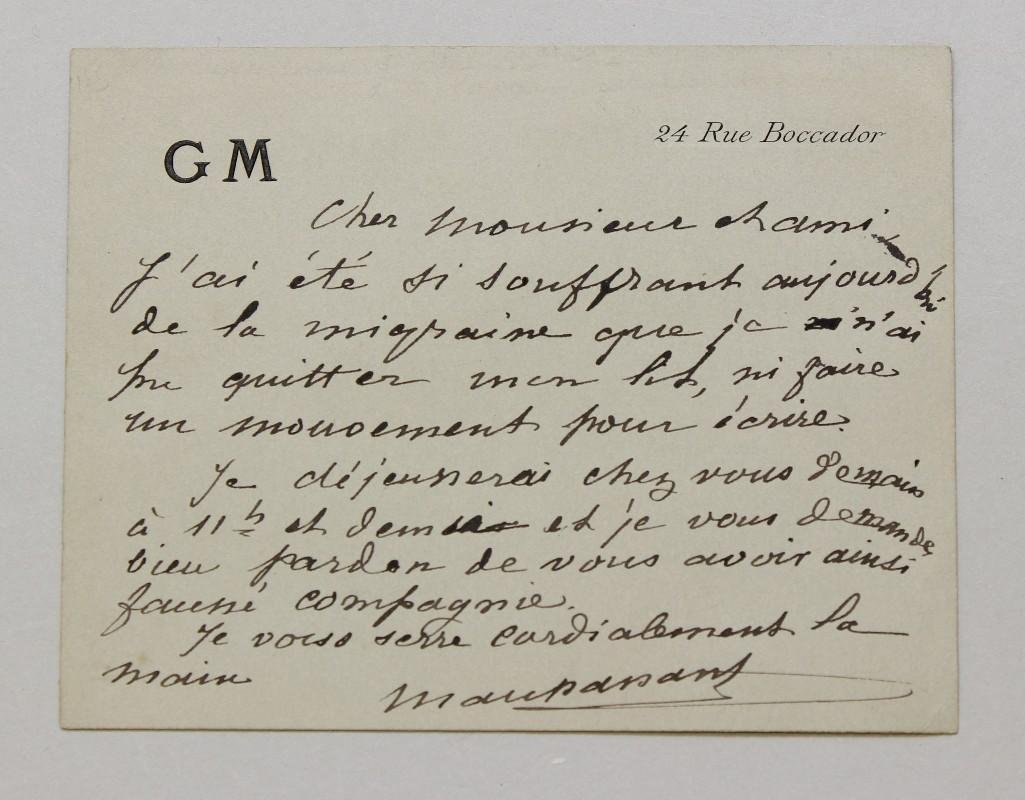 GM
24 Rue Boccador
Cher Monsieur et ami,
J'ai été si souffrant aujourd'hui
de la migraine que je n'ai
pu quitter mon lit, ni faire
un mouvement pour écrire.
Je déjeunerai chez vous demain
à 11h et demie et je vous demande
bien pardon de vous avoir ainsi
faussé compagnie.
Je vous serre cordialement la
main
Maupassant